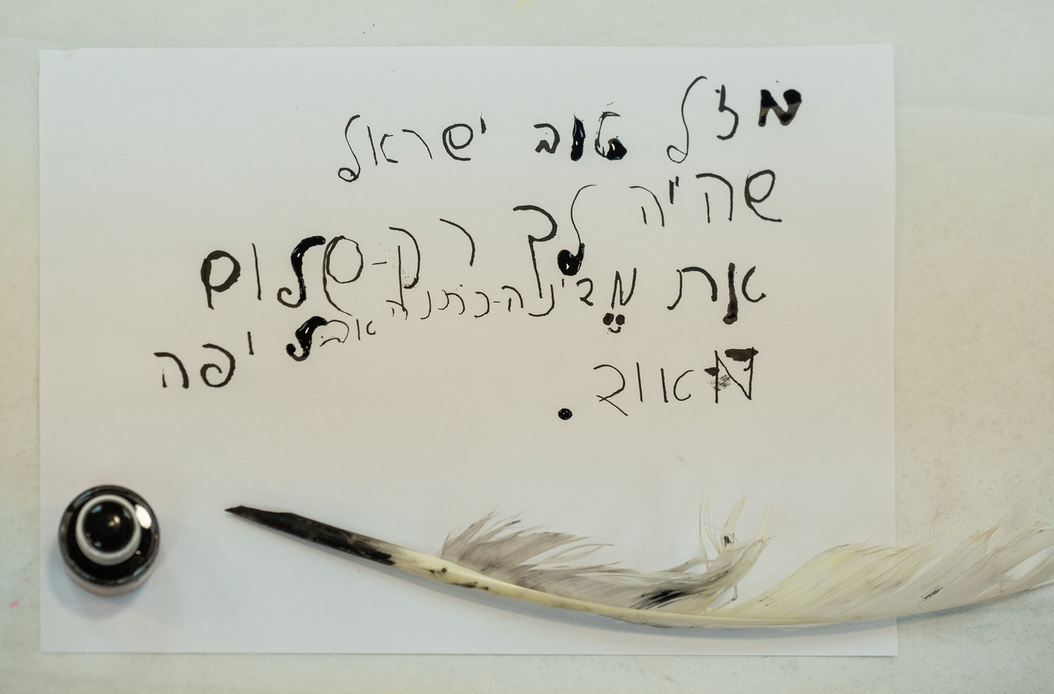 מזל טוב ישראל
שהיה לך רק-שלום
את מדינה-כתנה אבל יפה
מאוד.